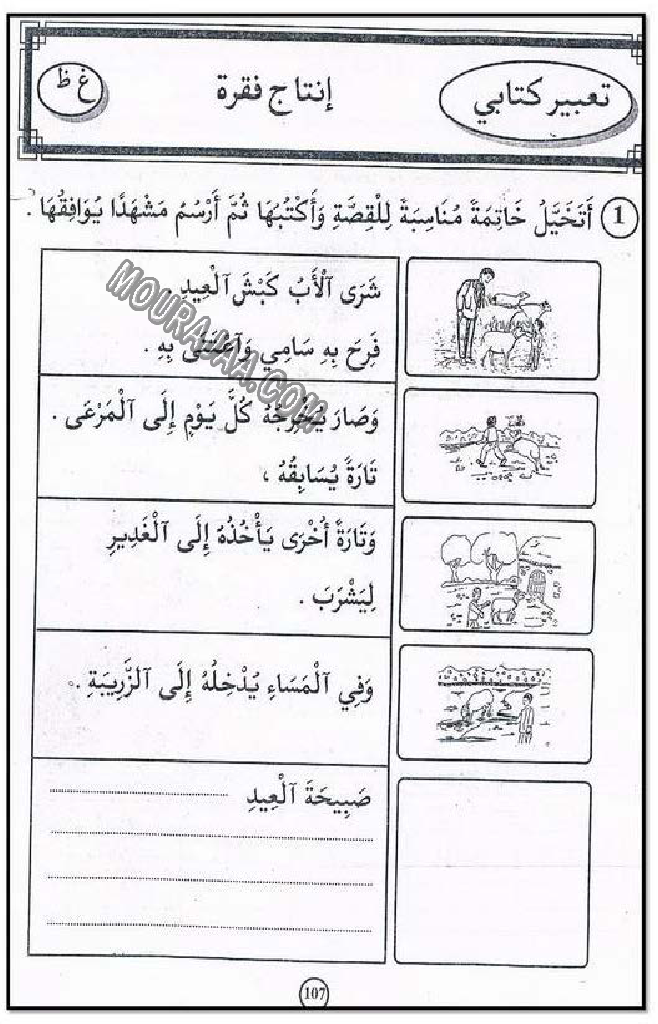 تعبير كتابي
إنتاج فقرة
غ ظ
1 أَتَخَيَّلُ خَاتِمَةً مُنَاسِبَةً لِلْقِصَّةِ وَأَكْتُبُهَا ثُمَّ أَرْسُمُ مَشْهَدًا يُوَافِقُهَا .
شَرَى ٱلْأَبُ كَبْشَ ٱلْعِيدِ .
فَرِحَ بِهِ سَامِي وَٱعْتَنَى بِهِ .
وَصَارَ يُخْرِجُهُ كُلَّ يَوْمٍ إِلَى ٱلْمَرْعَى .
تَارَةً يُسَابِقُهُ ،
وَتَارَةً أُخْرَى يَأْخُذُهُ إِلَى ٱلْغَدِيرِ
لِيَشْرَبَ .
وَفِي ٱلْمَسَاءِ يُدْخِلُهُ إِلَى ٱلزَّرِيبَةِ .
صَبِيحَةَ ٱلْعِيدِ
107
MOURAJAA.COM